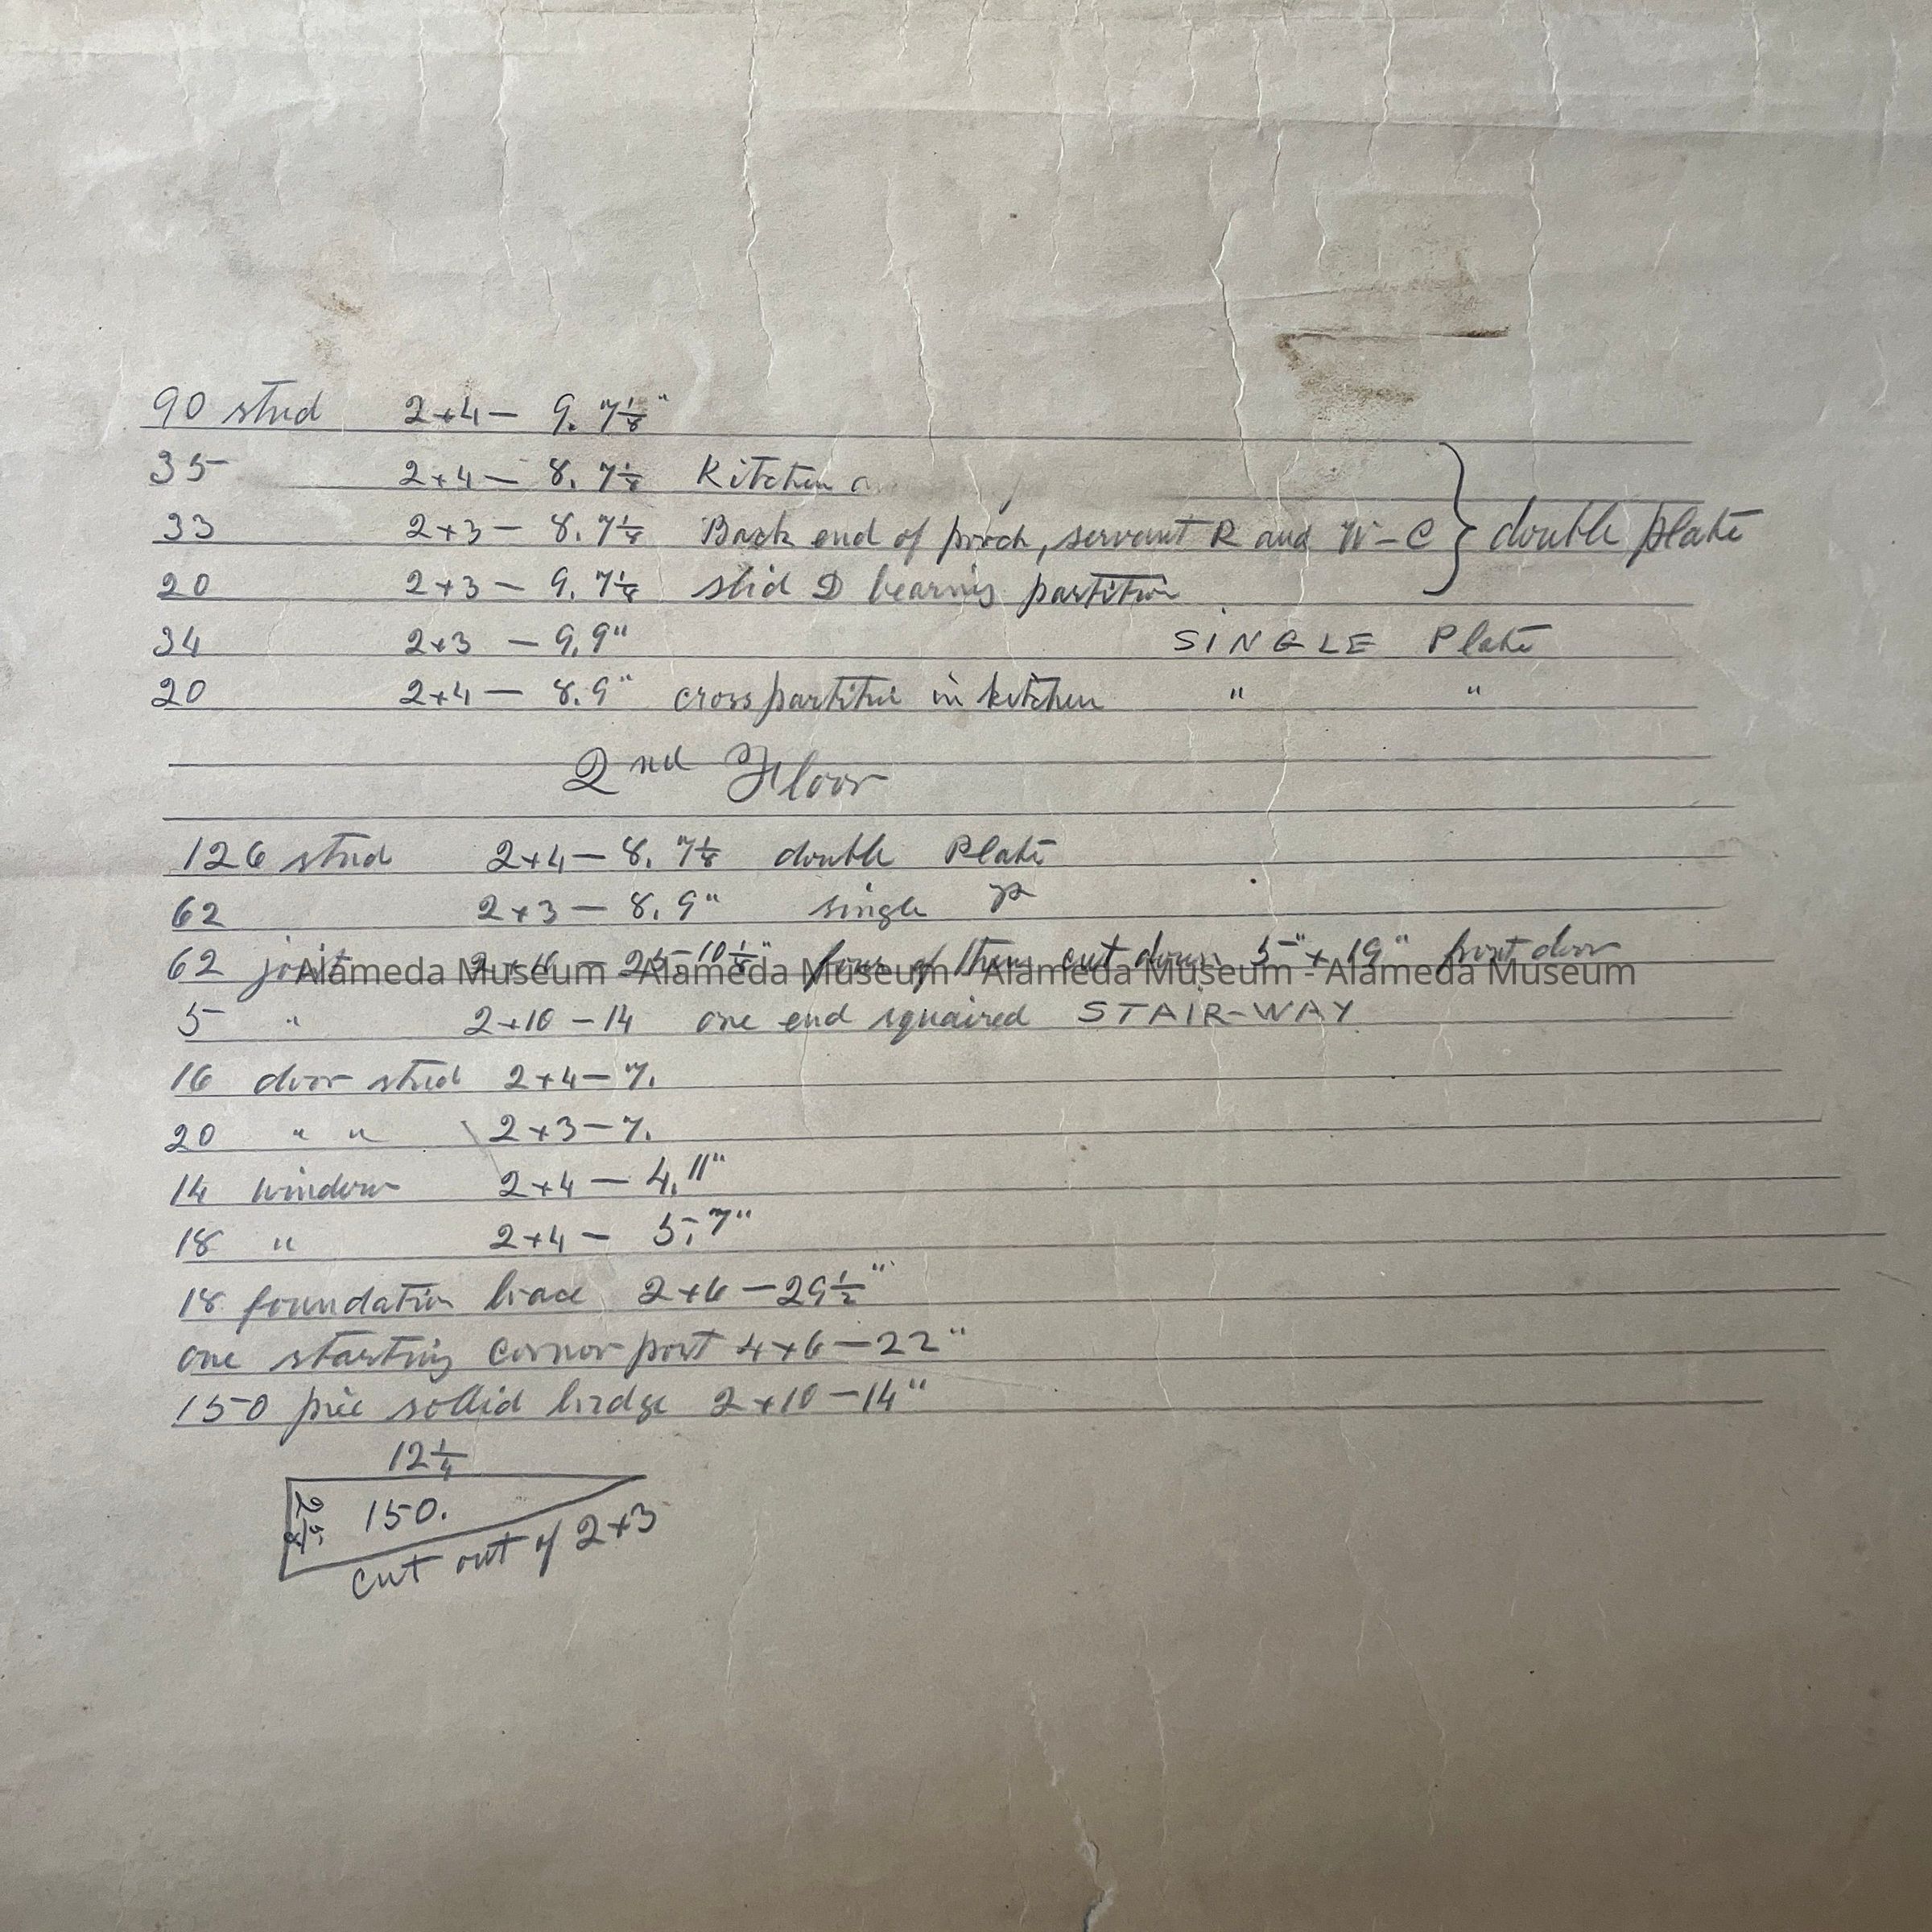 90 stud 2+4 – 9. 7 1/8"
35 2+4 – 8. 7 1/8 Kitchen
33 2+3 – 8. 7 1/8 Back end of porch, servant R and W-C } double plate
20 2+3 – 9. 7 1/8 slid D bearing partition
34 2+3 – 9.9" SINGLE Plate
20 2+4 – 8.9" cross partition in kitchen " "
2nd Floor
126 stud 2+4 – 8. 7 1/8 double Plate
62 2+3 – 8. 9" single P
62 joist 2+10 – 10 1/8" four of them cut down 5"+19" front door
Alameda Museum - Alameda Museum - Alameda Museum - Alameda Museum
5 " 2+10 – 14 one end squaired STAIR-WAY
16 door stud 2+4 – 7.
20 " " 2+3 – 7.
14 window 2+4 – 4.11"
18 " 2+4 – 5.7"
18 foundation brace 2+6 – 29 1/2"
one starting cornor post 4+6 – 22"
150 pice sollid bridge 2+10 – 14"
12 1/4
2 5/8 150.
cut out of 2+3